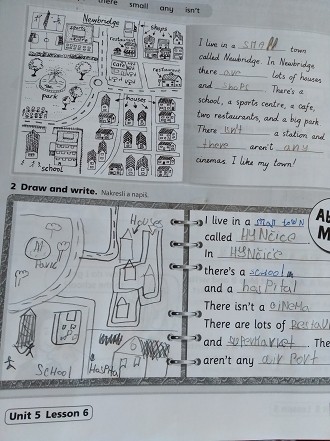 there small any isn't
Newbridge
sports
shops
restaurant
restaurant
cafe
houses
park
school
I live in a small town
called Newbridge. In Newbridge
there are lots of houses
and shops. There's a
school, a sports centre, a cafe,
two restaurants, and a big park.
There isn't a station and
there aren't any
cinemas. I like my town!
2 Draw and write. Nakresli a napiš.
Houses
PARK
SCHOOL
HasPital
I live in a small town
called HyNčice
In HyNčice
there's a school
and a hasPital
There isn't a CiNeMa
There are lots of
and superMarket. The
aren't any air Port
Unit 5 Lesson 6